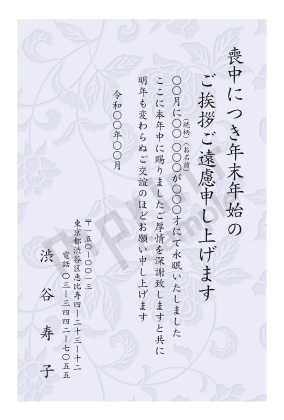 喪中につき年末年始の
ご挨拶ご遠慮申し上げます
〇〇月に〇〇(続柄) 〇〇〇(お名前)が〇〇〇才にて永眠いたしました
ここに本年中に賜りましたご厚情を深謝致しますと共に
明年も変わらぬご交誼のほどお願い申し上げます
令和〇〇年〇〇月
〒一五〇-〇〇一三
東京都渋谷区恵比寿四-二十三-十二
電話 〇三-三四四二-七〇五五
渋谷 寿子